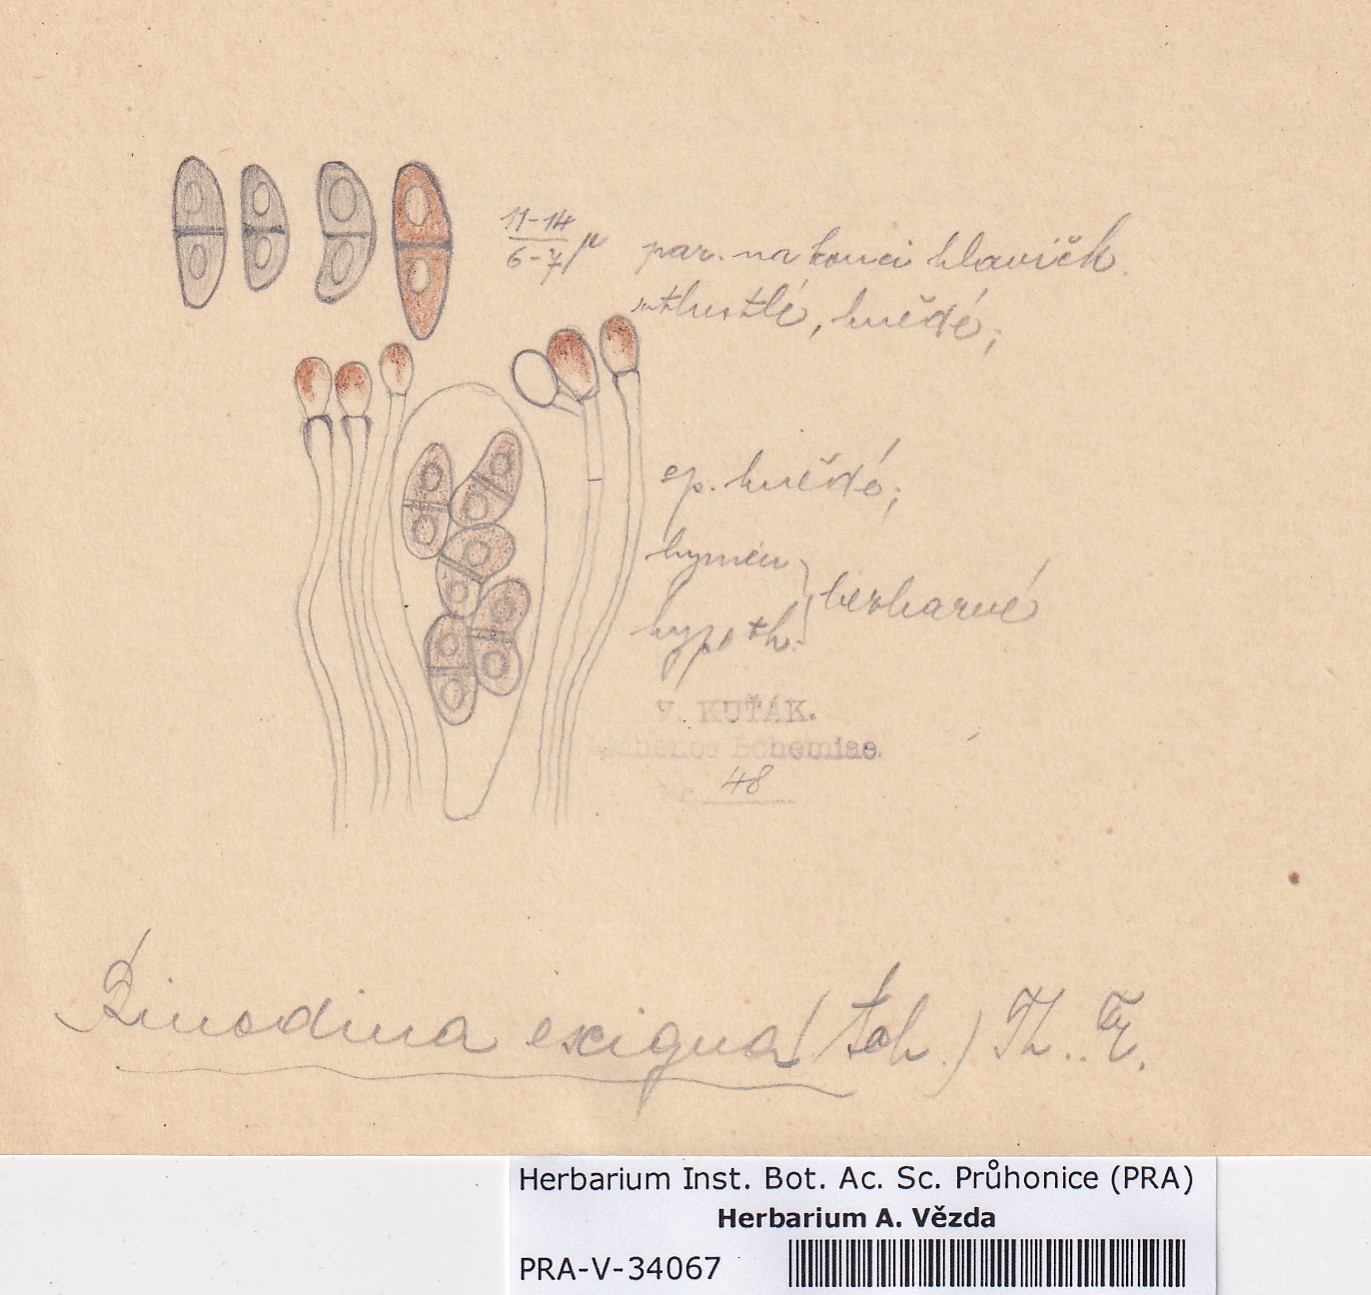 11-14
6-7 μ
par. na konci hlavičk.
ztlustlé, hnědé;
ep. hnědé;
hymen
hypoth.
bezbarvé
V. KUŤÁK.
Lichenes Bohemiae.
48
Rinodina exigua (Ach.) Th. Fr.
Herbarium Inst. Bot. Ac. Sc. Průhonice (PRA)
Herbarium A. Vězda
PRA-V-34067